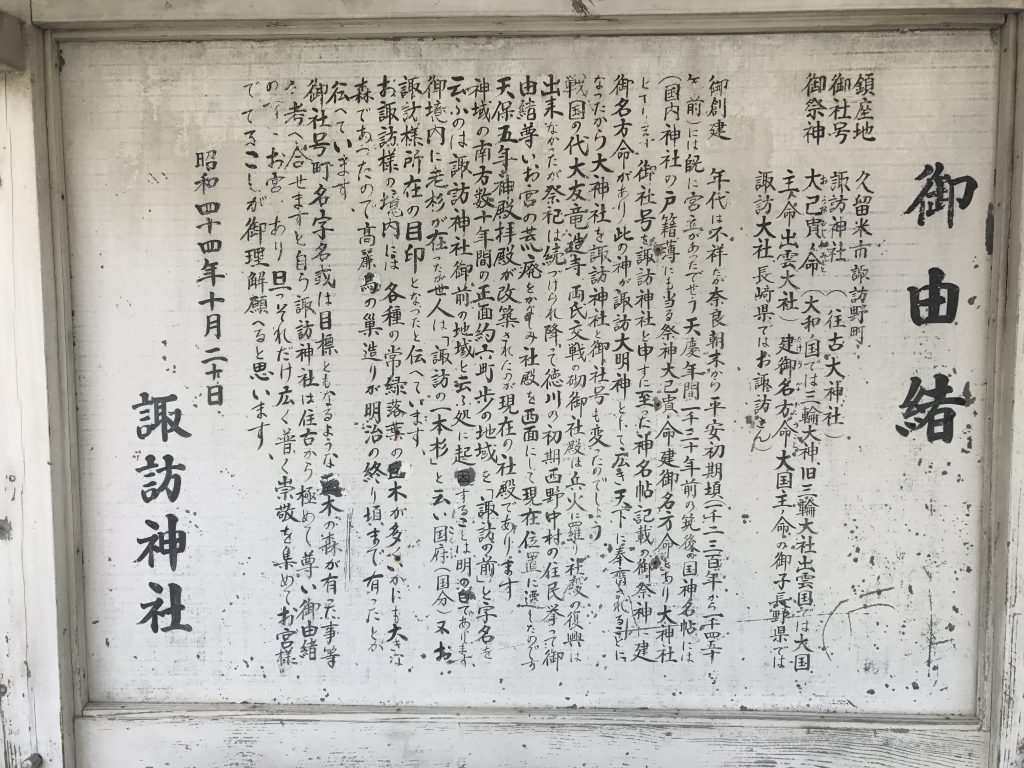 御由緒
鎮座地 久留米市諏訪野町
御社号 諏訪神社（往古大神社）
御祭神 大己貴命（大和国では三輪大神旧三輪大社出雲国では大国
主命 出雲大社 建御名方命 大国主命の御子長野県では
諏訪大社 長崎県ではお諏訪さん
御創建 年代は不祥だが奈良朝末から平安初期頃（一千二三百年から一千四五十
年前）には既に宮立があったでせう 天慶年間（一千二十年前の筑後国神名帖には
（国内神社の戸籍簿にも当る祭神大己貴命建御名方命とあり大神社
御社号を諏訪神社と申すに至った神名帖記載の御祭神に建
御名方命があり此の神が諏訪大明神として広き天下に奉賛されることに
なったから大神社を諏訪神社と御社号も変ったのでしょう
戦国の代大友竜造寺両氏交戦の砌御社殿は兵火に罹り社殿の復興は
出来なかたが祭祀は続づけられ降って徳川の初期西野中村の住民茶って御
由緒尊いお宮の荒廃をかなしみ社殿を西面にして現在位置に遷したのです
天保五年神殿拝殿が改築されたのが現在の社殿であります
神域の南方数十年間の正面約六町歩の地域を「諏訪の前」と字名を
云ふのは諏訪神社御前の地域と云ふ処に起因することは明白であります
御境内に老杉が在った世人は「諏訪の一本杉」と云い国府（国分）又お
諏訪様所在の目印となったと伝へています
お諏訪様の境内には各種の常緑落葉の木が多いかにも大きな
森であったので高巣鳥の巣造りが明治の終り頃まで有ったとか
伝へています
御社号町名字名或は目標ともなるような木の森が有た事等
考へ合せますと自ら諏訪神社は往古から極めて尊い御由緒
のお宮であり且つそれだけ広く普く崇敬を集めてお宮様
でてることが御理解願へると思います。
昭和四十四年十月二十日
諏訪神社